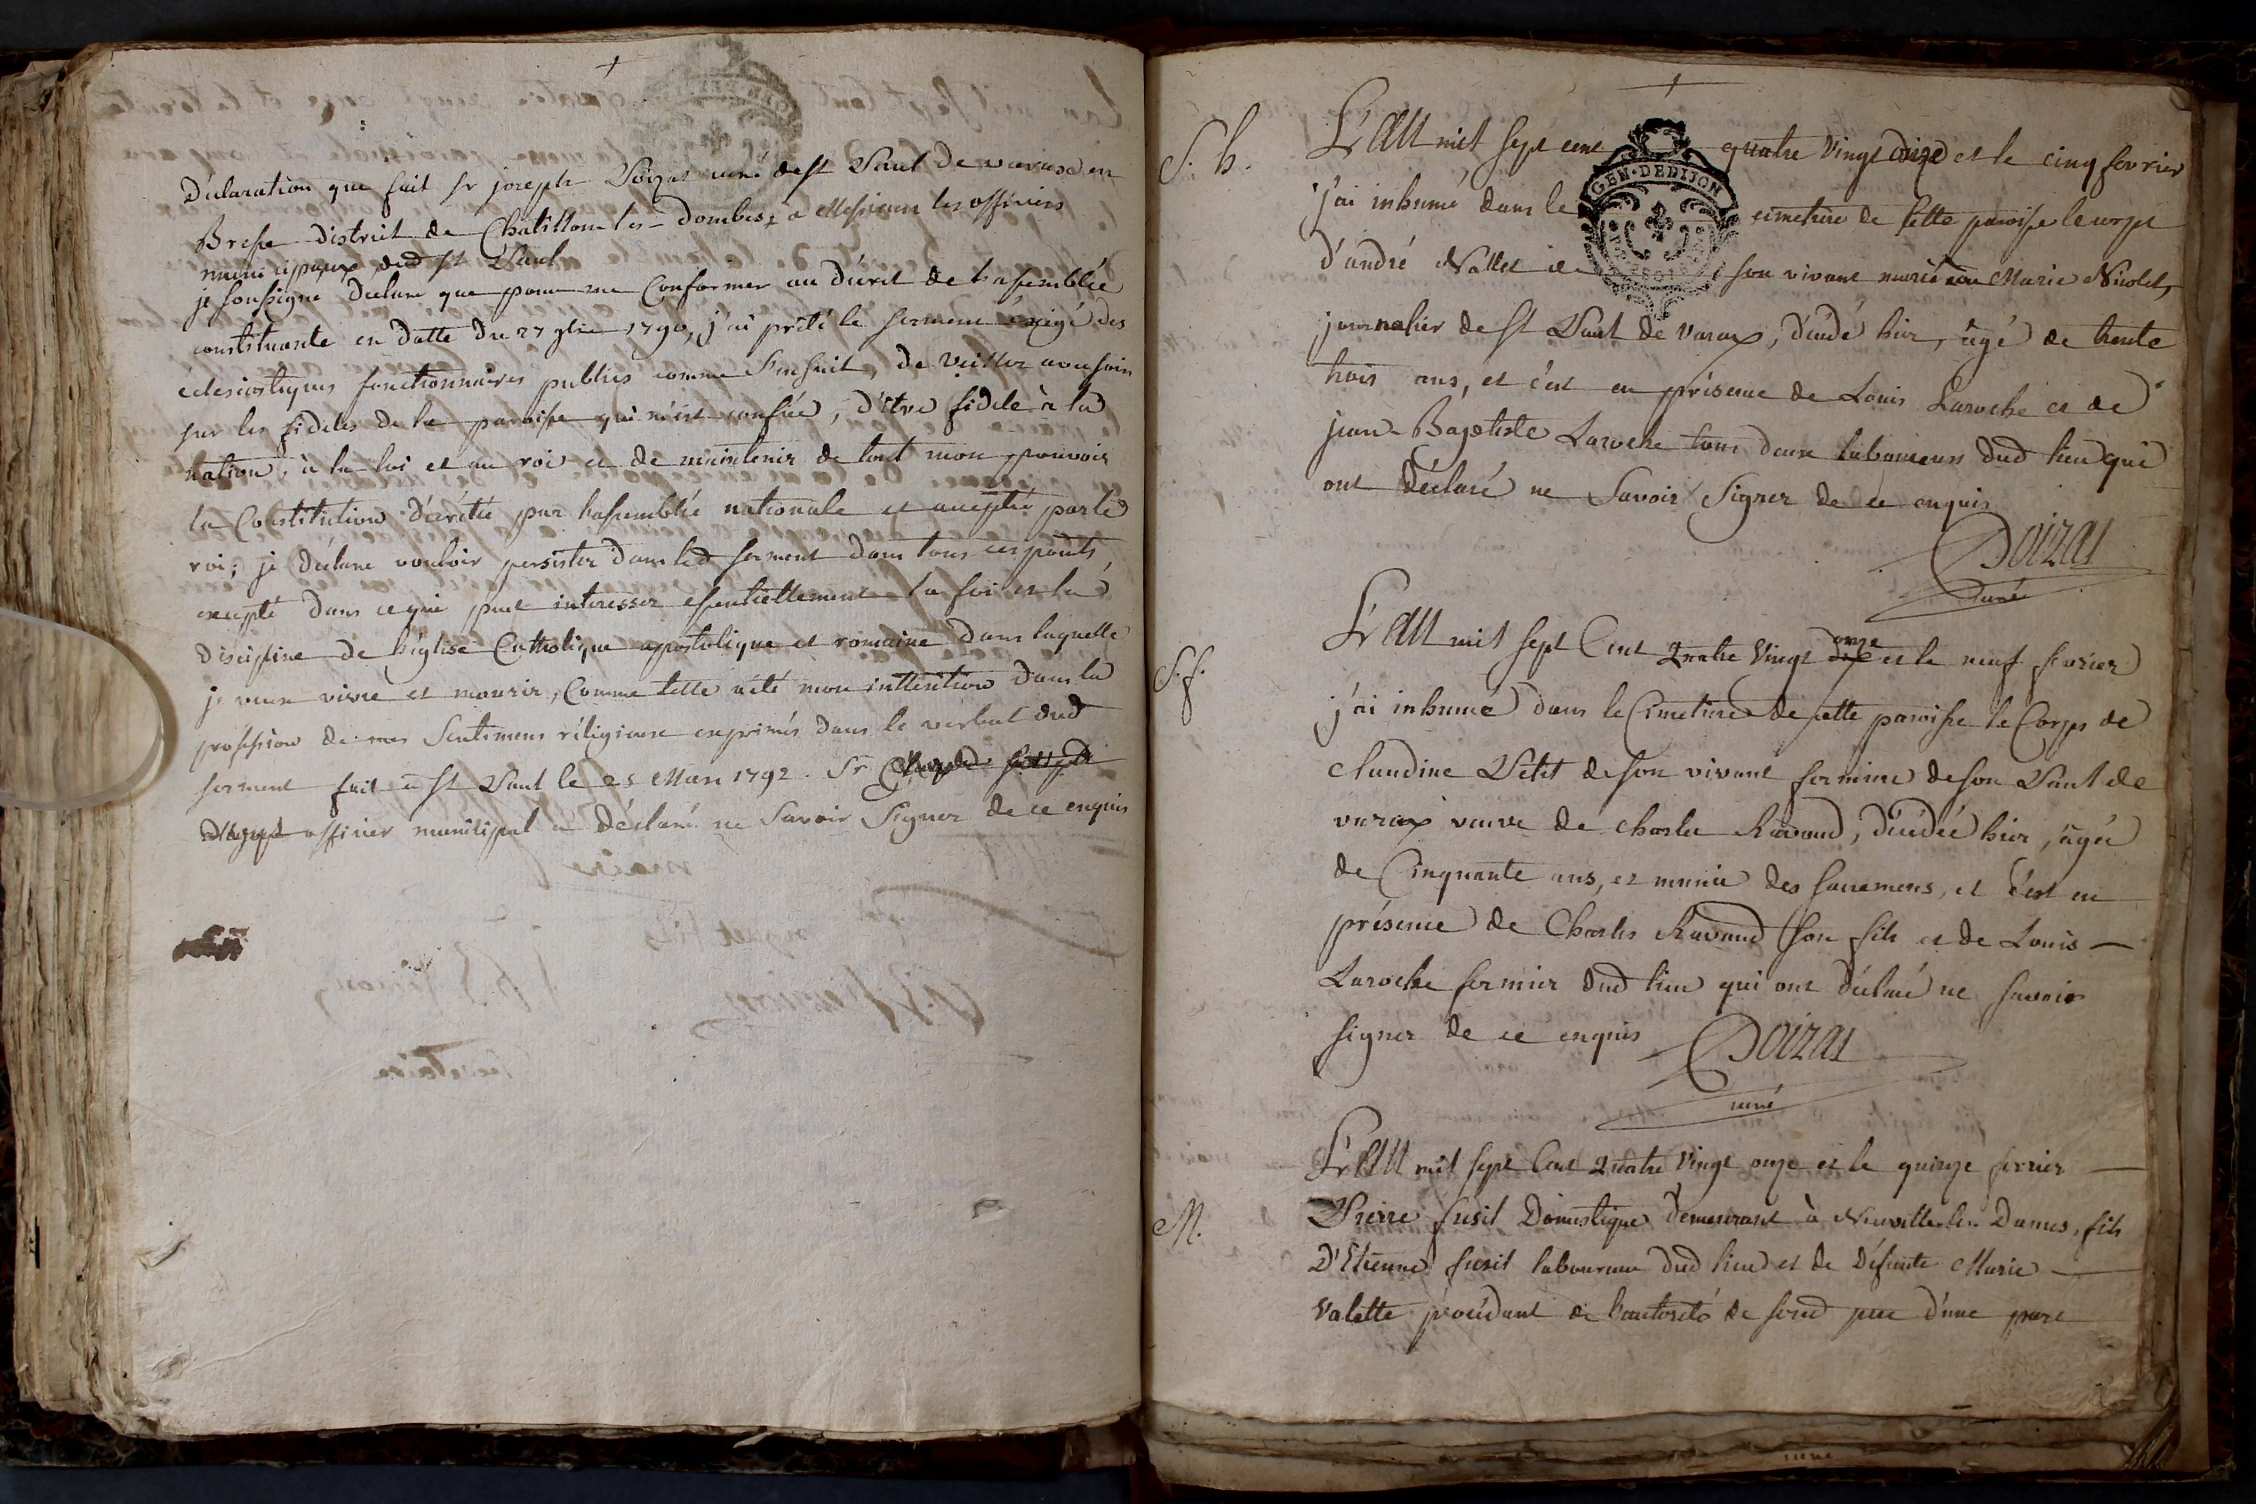 Déclaration que fait Sr joseph Poizat curé de St Paul de varax en
Bresse district de Chatillon les dombes, a Messieurs les officiers
municipaux dud St Paul
je soussigné declare que pour me Conformer au décret de lassemblée
constituante en datte du 27 9bre 1790, j'ai prété le serment éxigé des
éclesiastiques fonctionnaires publics comme s'ensuit, de veiller avec soin
sur les fideles de la paroisse qui m'est confiée, d'étre fidele à la
nation, à la loi et au roi et de maintenir de tout mon pouvoir
la Constitution décrétée par lassemblée nationale et acceptée par le
roi; je déclare vouloir persister dans led serment dans tous ces points,
excepté dans ce qui peut interesser essentiellement la foi et la
discipline de l'église Catholique apostolique et romaine dans laquelle
je veux vivre et mourir, Comme telle a été mon intention dans la
profession de mes Sentimens réligieux exprimés dans le verbal dud
serment fait à St Paul le 25 Mars 1792. Sr
officier municipal a déclaré ne Savoir Signer de ce enquis
S. h.
L'AN mil sept cent quatre vingt onze et le cinq fevrier
j'ai inhumé dans le cimetiere de cette paroisse le corps
d'andré Nallet de son vivant marié a Marie Nicolet,
journalier de St Paul de varax, décédé hier, agé de trente
trois ans, et c'est en présence de Louis Laroche et de
jean-Baptiste Laroche tous deux laboureurs dud lieu qui
ont déclaré ne Savoir Signer de ce enquis
Poizat
curé
S. f.
L'AN mil sept Cent Quatre vingt onze et le neuf fevrier
j'ai inhumé dans le Cimetiere de cette paroisse le Corps de
claudine Petit de son vivant fermiere de son Paul de
varax veuve de charles Ravaud, décédée hier, agée
de Cinquante ans, et munie des sacremens, et c'est en
présence de Charles Ravaud son fils et de Louis
Laroche fermier dud lieu qui ont déclaré ne savoir
signer de ce enquis Poizat
curé
M.
L'AN mil sept Cent Quatre vingt onze et le quinze fevrier
Pierre fusil Domestique demeurant à Neuville les Dames, fils
D'Etienne fusil laboureur dud lieu et de Défunte Marie
Valette procédant de l'autorité de sond pere d'une part
GEN·DE DIJON